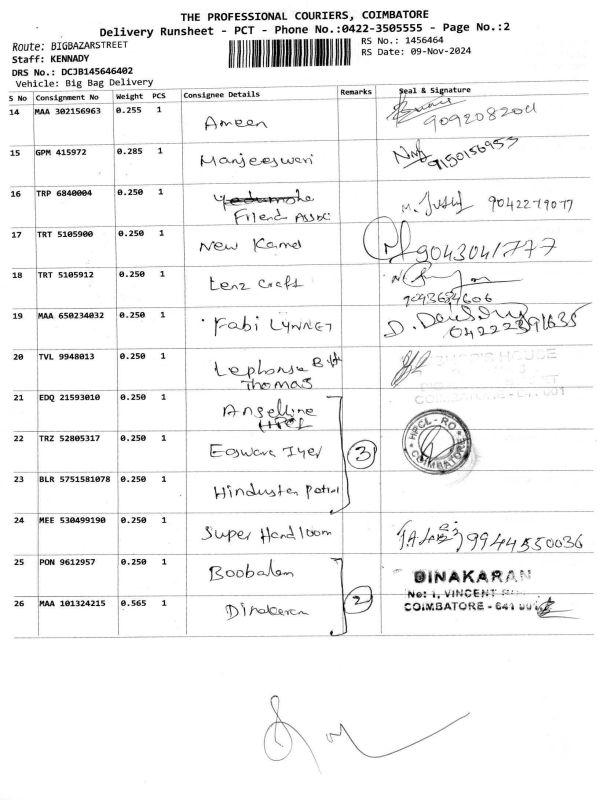 THE PROFESSIONAL COURIERS, COIMBATORE
Delivery Runsheet - PCT - Phone No.:0422-3505555 - Page No.:2
Route: BIGBAZARSTREET
RS No.: 1456464
Staff: KENNADY
RS Date: 09-Nov-2024
DRS No.: DCJB145646402
Vehicle: Big Bag Delivery
S No Consignment No Weight PCS Consignee Details Remarks Seal & Signature
14 MAA 302156963 0.255 1 Ameen 9092082011
15 GPM 415972 0.285 1 Manjeeswari 9150156953
16 TRP 6840004 0.250 1
Friend Assoc M. Jusuf 9042279077
17 TRT 5105900 0.250 1 New Kamal 9043041777
18 TRT 5105912 0.250 1 Lenz Craft
9043684606
19 MAA 650234032 0.250 1 Fabi LYNNET D.
04222391635
20 TVL 9948013 0.250 1 HOUSE
Thomas
COIMBATORE - 641 001
21 EDQ 21593010 0.250 1 Angelline
HPCL
22 TRZ 52805317 0.250 1 Eswara Iyer 3 HPCL - RO COIMBATORE
23 BLR 5751581078 0.250 1 Hindustan Petrol
24 MEE 530499190 0.250 1 Super Handloom 9944550036
25 PON 9612957 0.250 1 Boobalan DINAKARAN
No: 1, VINCENT
26 MAA 101324215 0.565 1 Dinakaran 2 COIMBATORE - 641 001